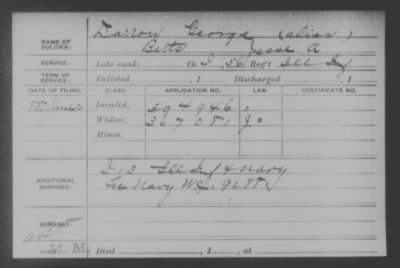 NAME OF SOLDIER: Darrow George (alias)
Betts Jesse A
SERVICE: Late rank, Co. I, 56 Reg't Ill Inf
TERM OF SERVICE: Enlisted , 1 Discharged , 1
DATE OF FILING. CLASS. APPLICATION NO. LAW. CERTIFICATE NO.
Invalid, 394946
Widow, 367081 J
Minor,
ADDITIONAL SERVICES: I 13 Ill Inf & Navy
Navy W.C. 9288
REMARKS:
Died , 1 , at